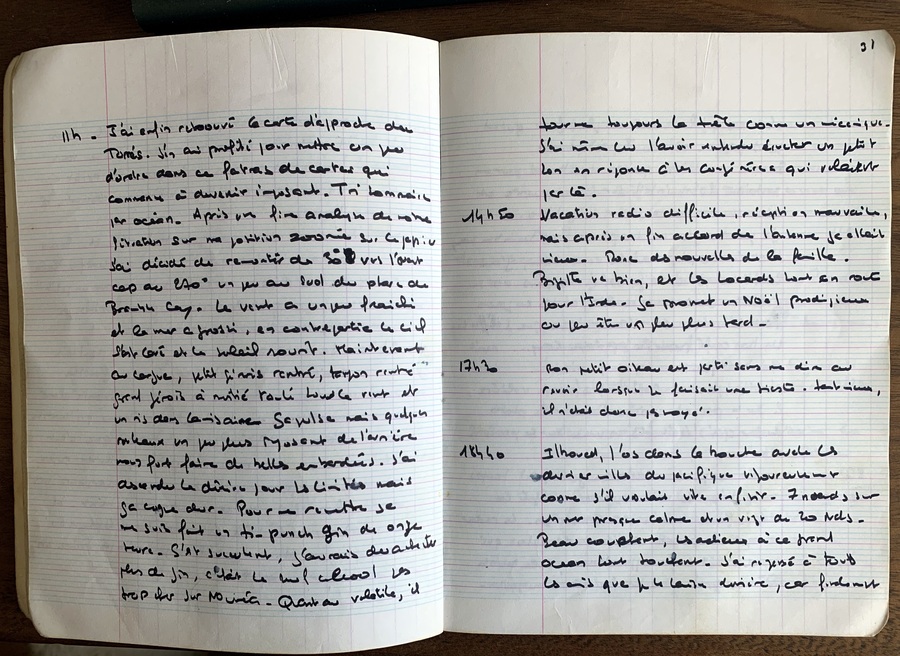 11h - J'ai enfin retrouvé la carte d'approche du
Torrès. J'en ai profité pour mettre un peu
d'ordre dans ce fatras de cartes qui
commence à devenir imposant. Tri sommaire
par océan. Après une fine analyse de notre
situation sur ma position sur ce papier
j'ai décidé de remonter de 30 vers l'ouest
cap au 270° un peu au sud du phare de
Bramble Cay. Le vent a un peu fraichi
et la mer a grossi, en contrepartie le ciel
s'est lavé et le soleil sourit. Maintenant
au largue, petit génois rentré,
grand génois à moitié roulé sous le vent et
un ris dans la misaine. Ça pulse mais quelques
rouleaux un peu plus de l'arrière
nous font faire de belles embardées. J'ai
la dérive pour les limiter mais
ça cogne dur. Pour me remettre je
me suis fait un ti-punch gin de onze
heure. C'est succulent, j'aurais du acheter
plus de gin, c'était le seul alcool pas
trop cher sur Nouméa. Quant au volatile, il
31
tourne toujours la tête comme un mécanique.
J'ai même cru l'avoir entendu un petit
son en réponse à les congénères qui volaient
par là.
14h50 Vacation radio difficile, réception mauvaise,
mais après un fin accord de l'antenne ça allait
mieux. Donc des nouvelles de la famille.
va bien, et les sont en route
pour l'Inde. Ça promet un Noël prodigieux
ou peu être un peu plus tard -
17h30 Mon petit oiseau est parti sans me dire au
revoir lorsque je faisait une sieste. Tant mieux,
il n'était donc pas
18h40 , l'os dans la bouche avale les
dernier milles du pacifique vigoureusement
comme s'il voulait vite en finir. 7 noeuds sur
un mer presque calme et un vent de 20 Nds.
Beau couchant, les adieux à ce grand
océan sont touchant. J'ai repensé à tous
les amis que je laisse derrière, car finalement